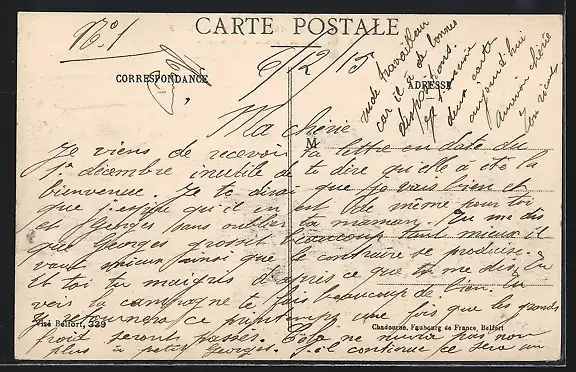 CARTE POSTALE
N:° 1
6/12/15
CORRESPONDANCE
ADRESSE
M
Ma chérie
Je viens de recevoir ta lettre en date du
1er décembre inutile de te dire qu'elle a été la
bienvenue. Je te dirai que je vais bien et
que j'espère qu'il en est de même pour toi
et Georges sans oublier ta maman. Tu me dis
que Georges grossit beaucoup tant mieux il
vaut mieux ainsi que le contraire se produise.
Et toi tu maigris d'après ce que tu me dis, tu
vois la campagne te fais beaucoup de bien. tu
y retournera ce printemps une fois que les grands
froid seront passés. Cela ne nuira pas non
plus à petit Georges. S'il continue ce sera un
rude travailleur
car il a de bonnes
dispositions.
deux carte
aujourd'hui
chérie
Visé Belfort, 329
Chadourne, Faubourg de France, Belfort